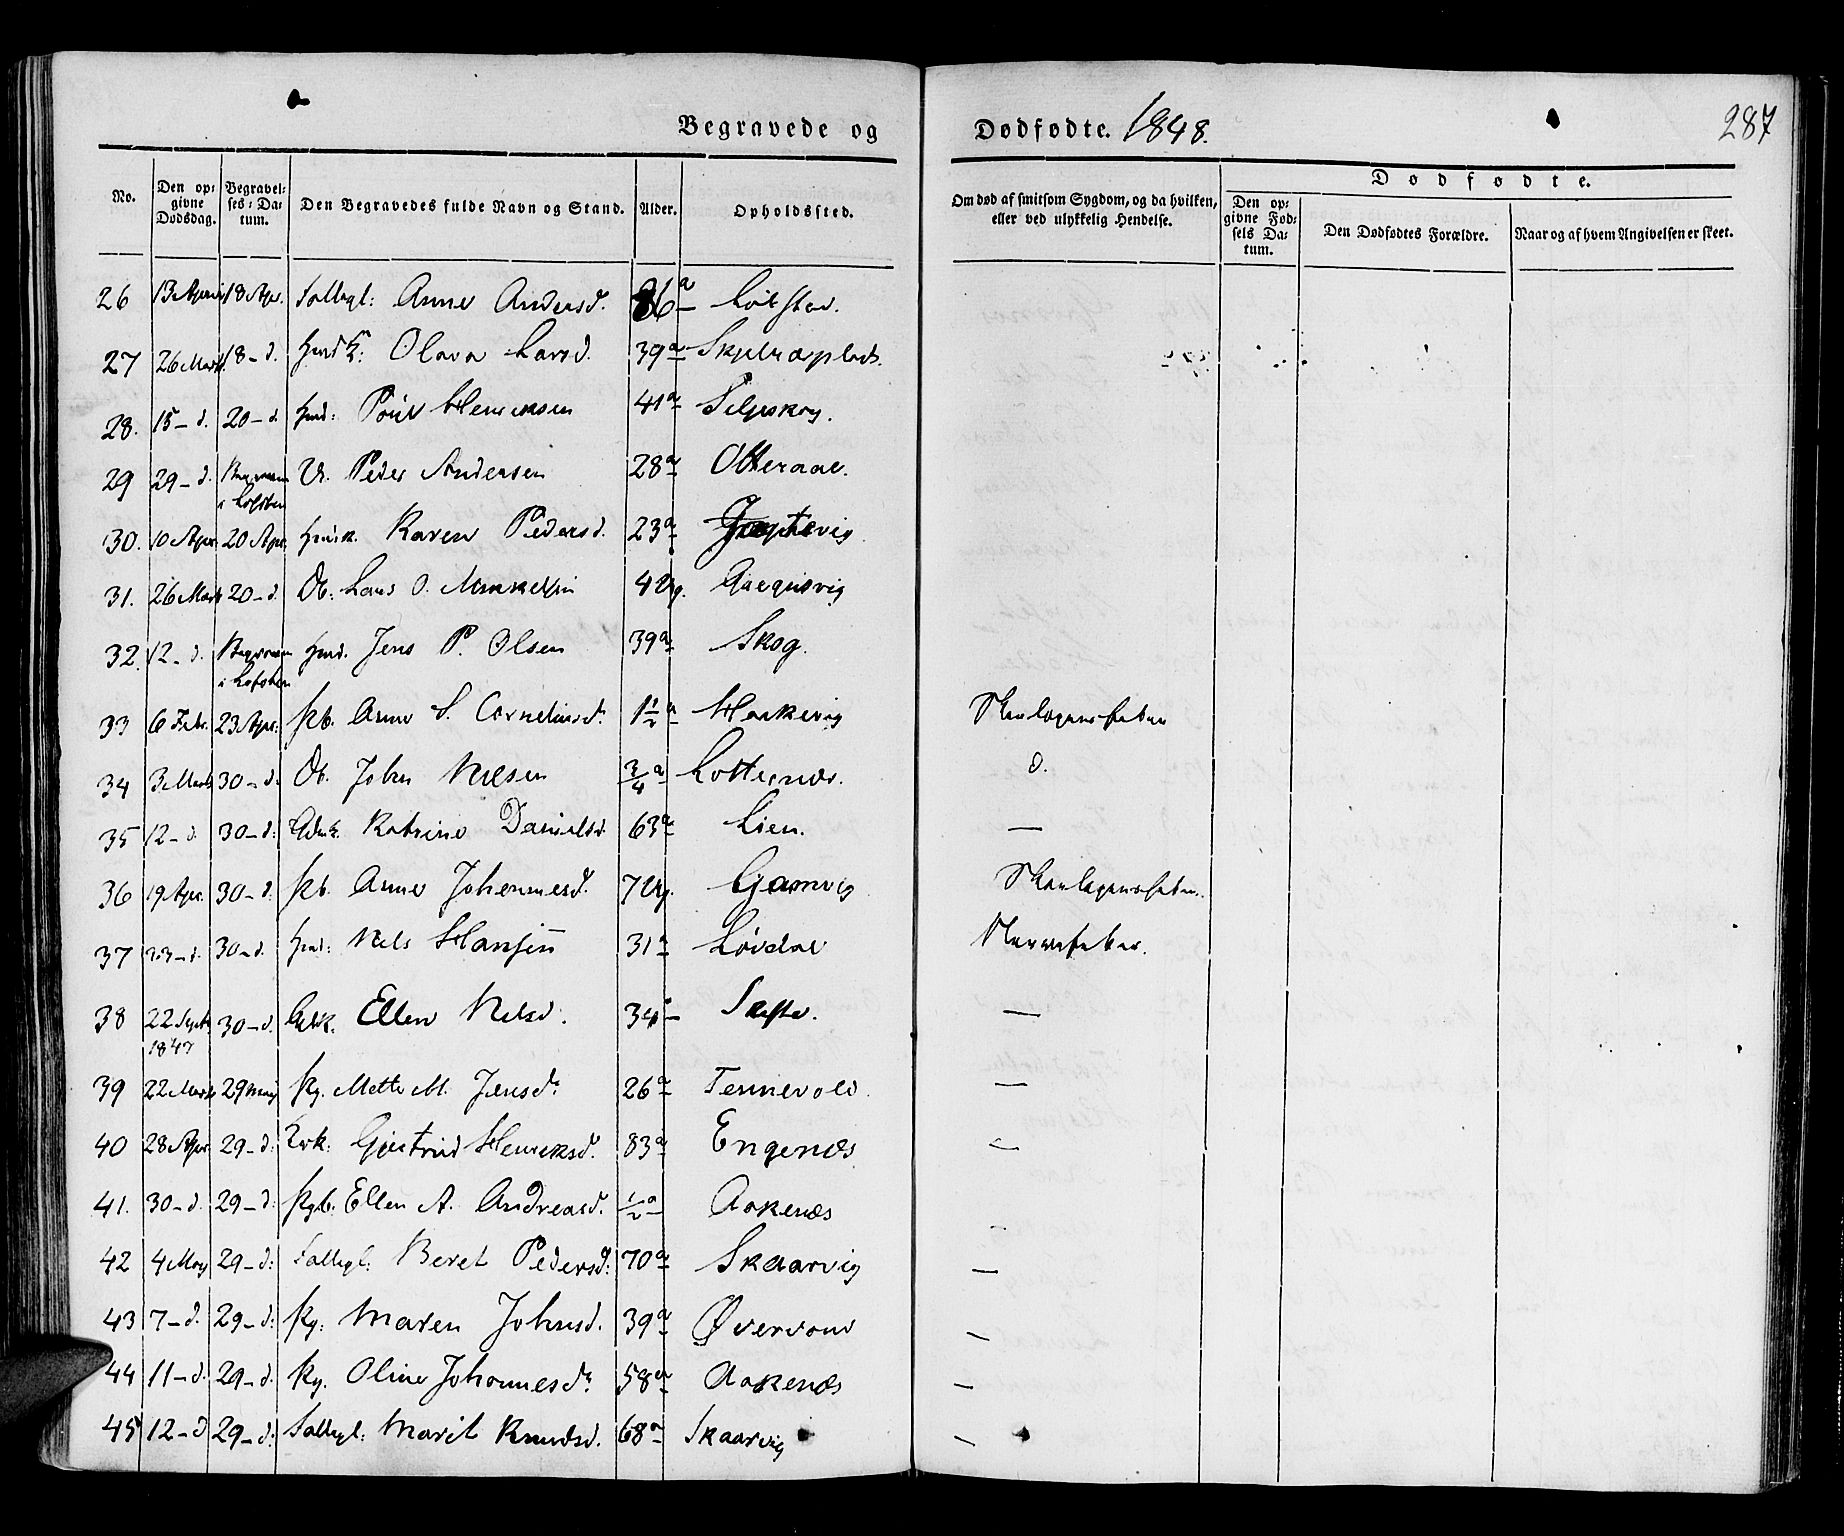 Begravede og Dødfødte. 1848. 287
No. Den opgivne Dødsdag. Begravelses-Datum. Den Begravedes fulde Navn og Stand. Alder. Opholdssted. Om død af smitsom Sygdom, og da hvilken, eller ved ulykkelig Hendelse. Dødfødte.
Den opgivne Fødsels Datum. Den Dødfødtes Forældre. Naar og af hvem Angivelsen er skeet.
26 13 April 18 Apr. Anne Andersd. 86 a
27 26 Marts 18 - d. Olava Larsd. 39 a
28. 15 - d. 20 - d. Hmd: Poul Henriksen 41 a
29 29 - d. Begraven i Lofoten U. Peder Andersen 28 a Otteraae.
30. 10 Apr. 20 Apr. Karen Pedersd. 23 a
31. 26 Marts 20 - d. Lars O. Mikkelsen 4 Ug.
32. 12 - d. Begraven i Lofoten Hmd. Jens P. Olsen 39 a Skog.
33 6 Febr. 23 Apr. Pb. Anne S. Corneliusd. 1½ a Skarlagensfeber
34 3 Marts 30 - d. John Nilsen ¾ a d.
35 12 - d. 30 - d: Katrine Danielsd. 63 a Lien. —
36 19 Apr. 30 - d: Pb. Anne Johannesd. 7 Ug. Gamvig Skarlagensfeber.
37 23 - d. 30 - d. Hmd: Nils Hansen 31 a Løvdal Nervefeber.
38 22 Septb 1847 30 - d. Ellen Nilsd. 34 a —
39 22 Marts 29 May Pg. Mette M. Jensd. 26 a Tennevold. —
40 28 Apr. 29 - d: Gjertrud Henriksd. 83 a Engenæs —
41. 30 - d. 29 - d: Pgb: Ellen A. Andreasd. ½ a Aakenæs
42 4 May 29 - d: Beret Pedersd: 70 a Skaarvig —
43 7 - d. 29 - d: Pg: Maren Johnsd. 39 a —
44 11 - d. 29 - d. Pg. Oline Johannesd. 58 a Aakenæs —
45 12 - d 29 - d: Marit Knudsd. 68 a Skaarvig —